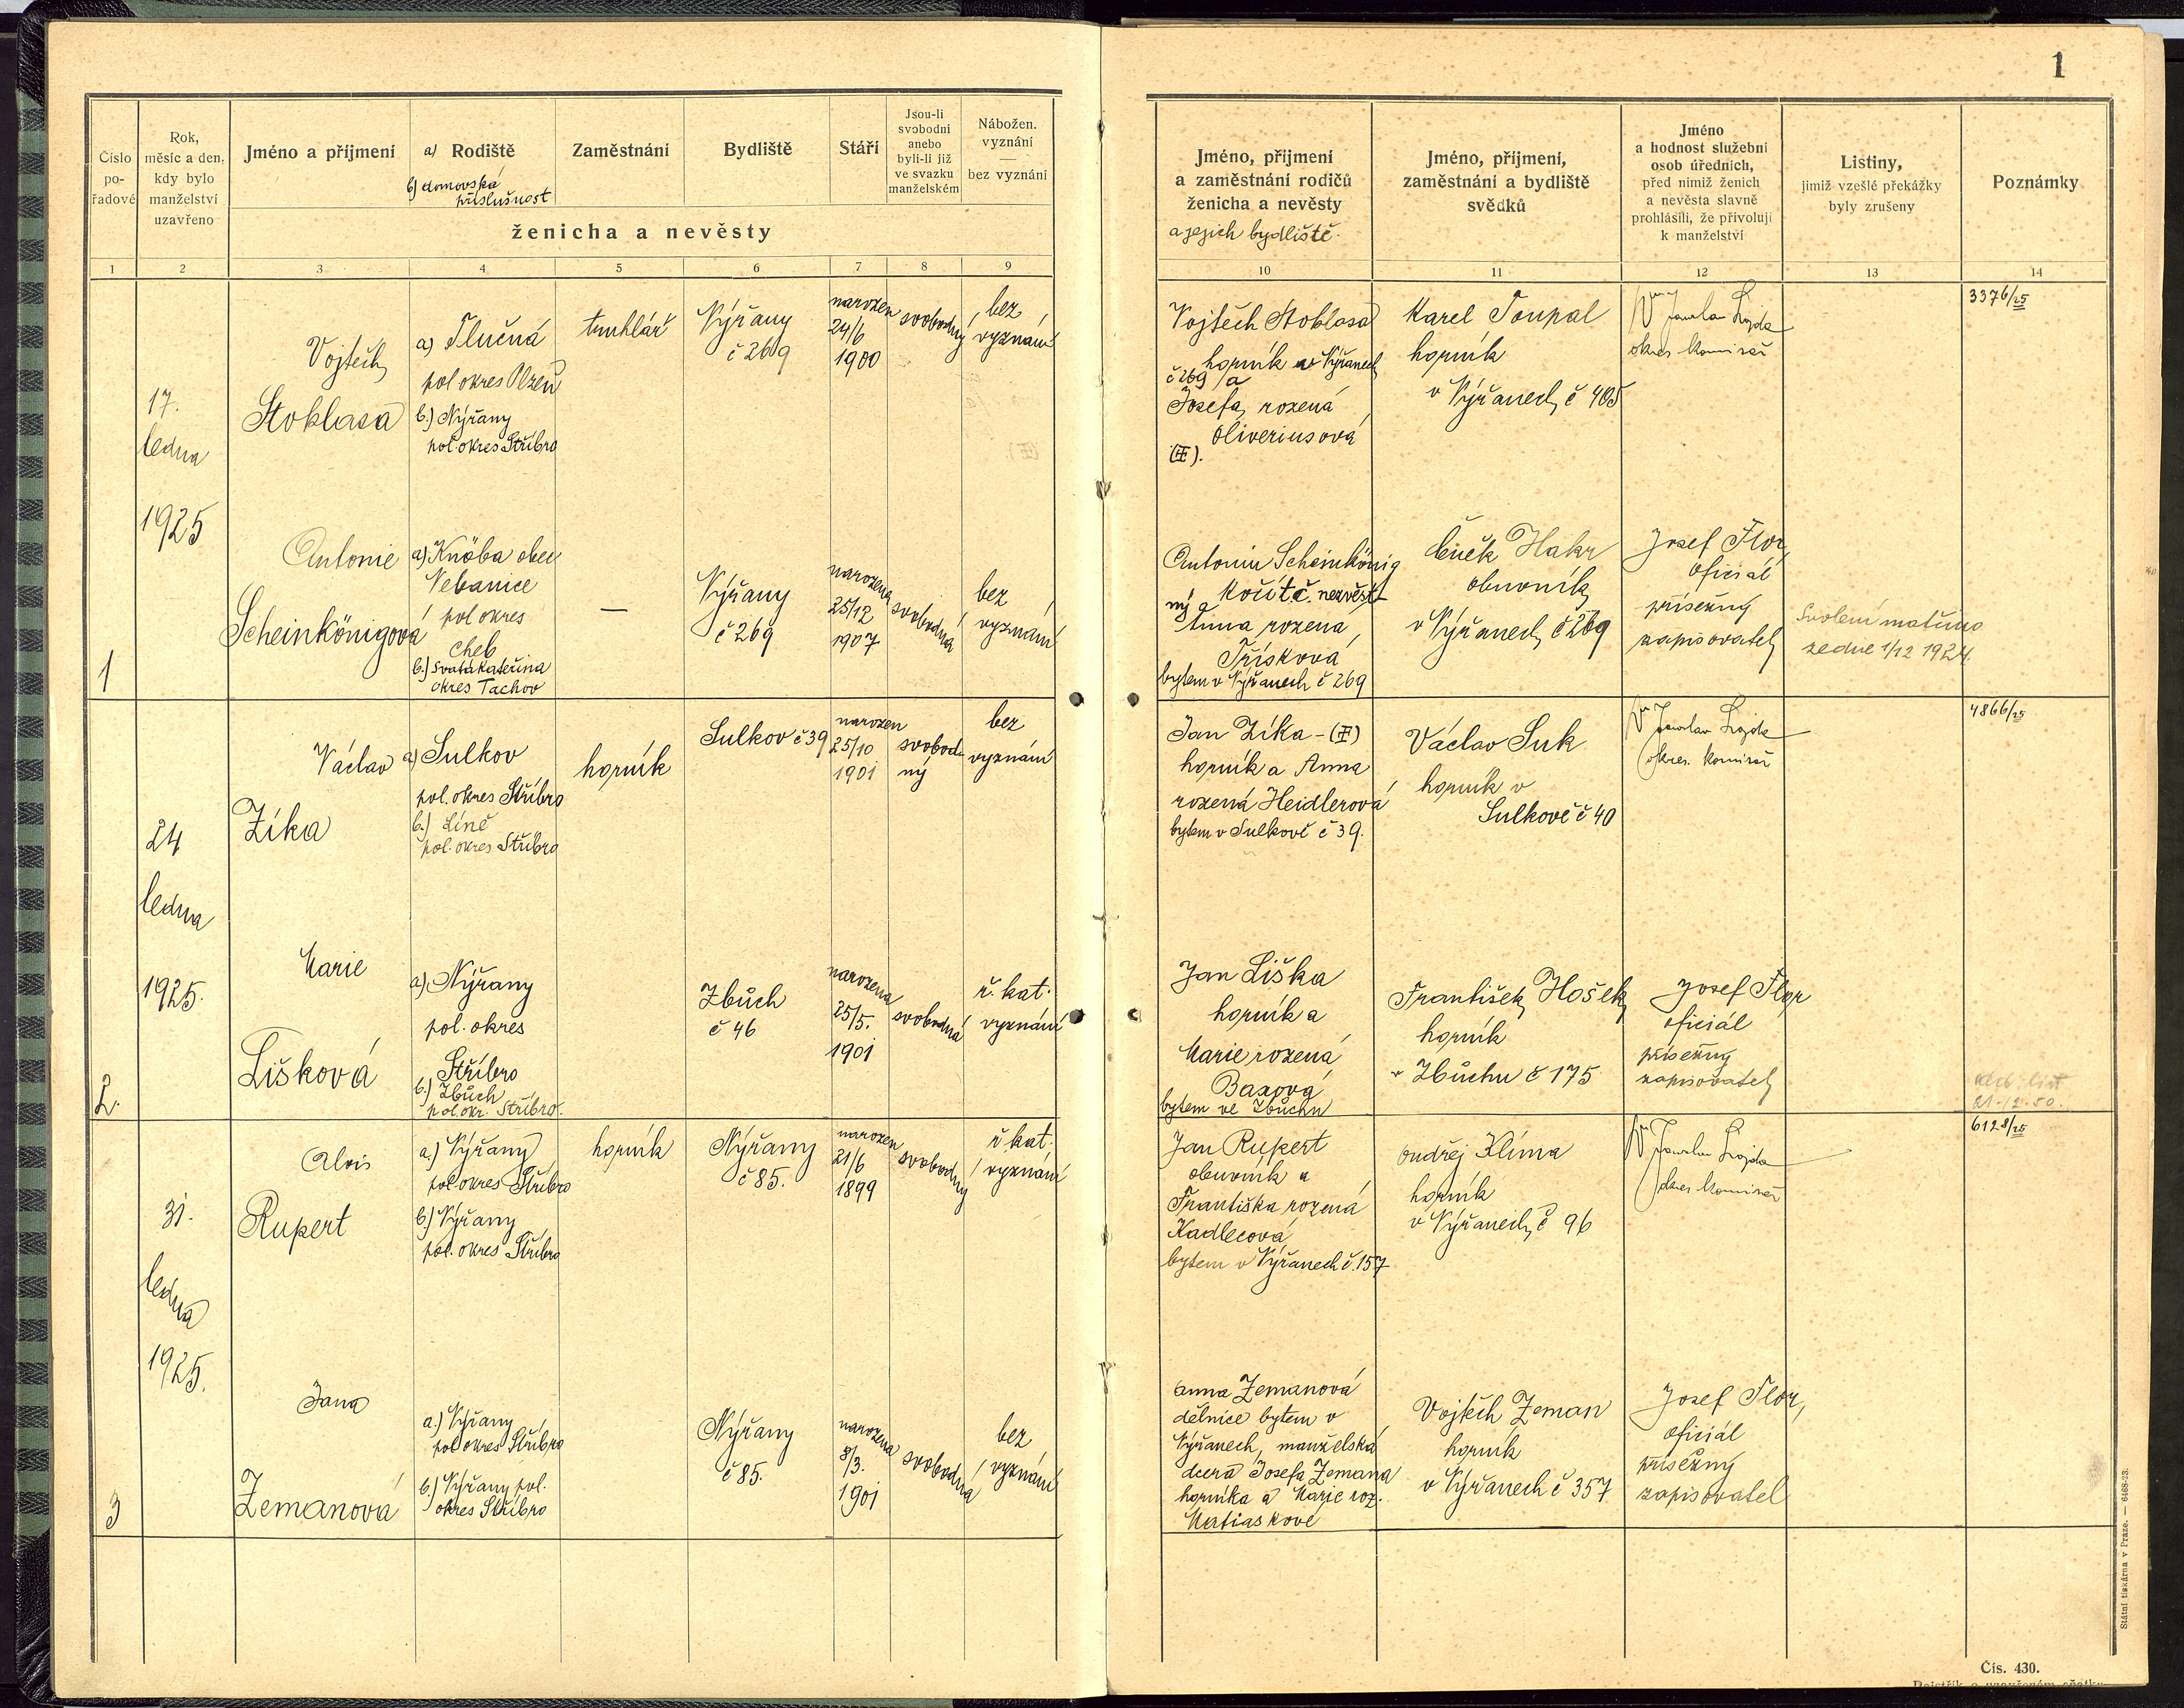 1
Číslo po- řadové
Rok, měsíc a den, kdy bylo manželství uzavřeno
Jméno a příjmení
a) Rodiště
b) domovská příslušnost
Zaměstnání
Bydliště
Stáří
Jsou-li svobodni anebo byli-li již ve svazku manželském
Nábožen. vyznání — bez vyznání
ženicha a nevěsty
Jméno, příjmení a zaměstnání rodičů ženicha a nevěsty
a jejich bydliště.
Jméno, příjmení, zaměstnání a bydliště svědků
Jméno a hodnost služební osob úředních, před nimiž ženich a nevěsta slavně prohlásili, že přivolují k manželství
Listiny, jimiž vzešlé překážky byly zrušeny
Poznámky
1 2 3 4 5 6 7 8 9 10 11 12 13 14
1
17.
ledna
1925
Vojtěch
Stoklasa
a) Tlučná
pol okres Plzeň
b.) Nýřany
pol. okres Stříbro
truhlář
Nýřany
č 269
narozen
24/6
1900
svobodný
bez
vyznání
Vojtěch Stoklasa
horník v Nýřanech
č 269 a
Josefa, rozená
Oliveriusová
Karel Toupal
horník
v Nýřanech č 405
okres. komisař
3376/25
Antonie
Scheinkönigová
a) Knöba obec
Nebanice
pol okres
Cheb
b.) Svatá Kateřina
okres Tachov
—
Nýřany
č 269
narozena
25/12
1907
svobodná
bez
vyznání
Antonín Scheinkönig
kočí t.č. nezvěst
ný a
Anna rozená
Třísková
bytem v Nýřanech č 269
Čeněk Hakr
obuvník
v Nýřanech č 269
Josef Flor,
oficiál
přísežný
zapisovatel
Svolení matčino
ze dne 1/12 1924.
2.
24
ledna
1925.
Václav
Zíka
a) Sulkov
pol. okres Stříbro
b.) Líně
pol. okres Stříbro
horník
Sulkov č 39
narozen
25/10
1901
svobod
ný
bez
vyznání
Jan Zíka -
horník a Anna
rozená Heidlerová
bytem v Sulkově č 39.
Václav Suk
horník v
Sulkově č 40
okres. komisař
4866/25
Marie
Lišková
a) Nýřany
pol. okres
Stříbro
b.) Zbůch
pol okr. Stříbro.
Zbůch
č 46
narozena
25/5.
1901
svobodná
ř. kat.
vyznání
Jan Liška
horník a
Marie rozená
Baxová
bytem ve Zbůchu
František Hošek
horník
v Zbůchu č 175
Josef Flor
oficiál
přísežný
zapisovatel
3
31.
ledna
1925.
Alois
Rupert
a.) Nýřany
pol. okres Stříbro
b.) Nýřany
pol. okres Stříbro
horník
Nýřany
č 85.
narozen
21/6
1899
svobodný
ř kat.
vyznání
Jan Rupert
obuvník a
Františka rozená
Kadlecová
bytem v Nýřanech č. 157
Ondřej Klíma
horník
v Nýřanech č 96
okres komisař
6128/25
Jana
Zemanová
a.) Nýřany
pol okres Stříbro
b.) Nýřany pol.
okres Stříbro
Nýřany
č 85.
narozena
8/3.
1901
svobodná
bez
vyznání
Anna Zemanová
dělnice bytem v
Nýřanech, manželská
dcera Josefa Zemana
horníka a Marie roz.
Matiaskové
Vojtěch Zeman
horník
v Nýřanech č 357
Josef Flor,
oficiál
přísežný
zapisovatel
Státní tiskárna v Praze. — 6468-23.
Čís. 430.